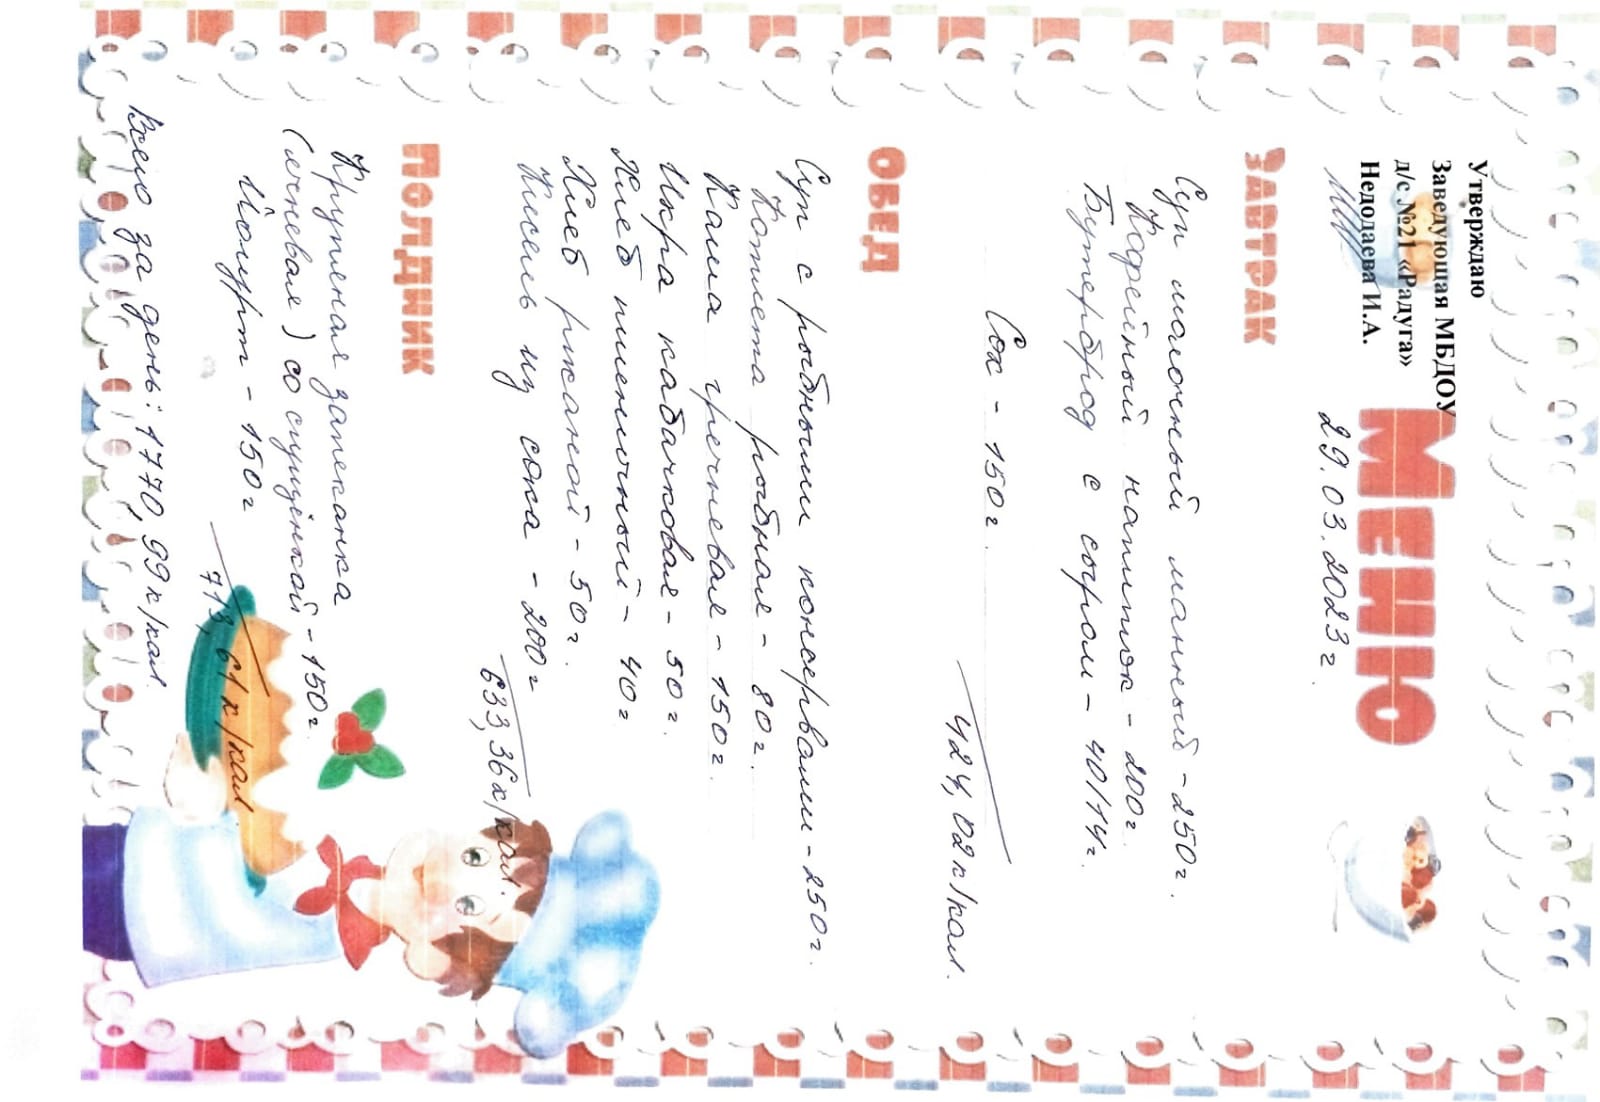 Утверждаю
Заведующая МБДОУ
д/с №21 «Радуга»
Недодаева И.А.
МЕНЮ
29.03.2023 г.
ЗАВТРАК
Суп молочный манный - 250 г.
Кофейный напиток - 200 г.
Бутерброд с сыром - 40/14 г.
Сок - 150 г.
424,02 к/кал.
ОБЕД
Суп с рыбными консервами - 250 г.
Котлета рыбная - 80 г.
Каша гречневая - 150 г.
Икра кабачковая - 50 г.
Хлеб пшеничный - 40 г
Хлеб ржаной - 50 г.
Кисель из сока - 200 г
633,36 к/кал.
ПОЛДНИК
Крупеная запеканка
(ячневая) со сгущёнкой - 150 г.
Йогурт - 150 г
713,61 к/кал
Всего за день: 1770,99 к/кал.